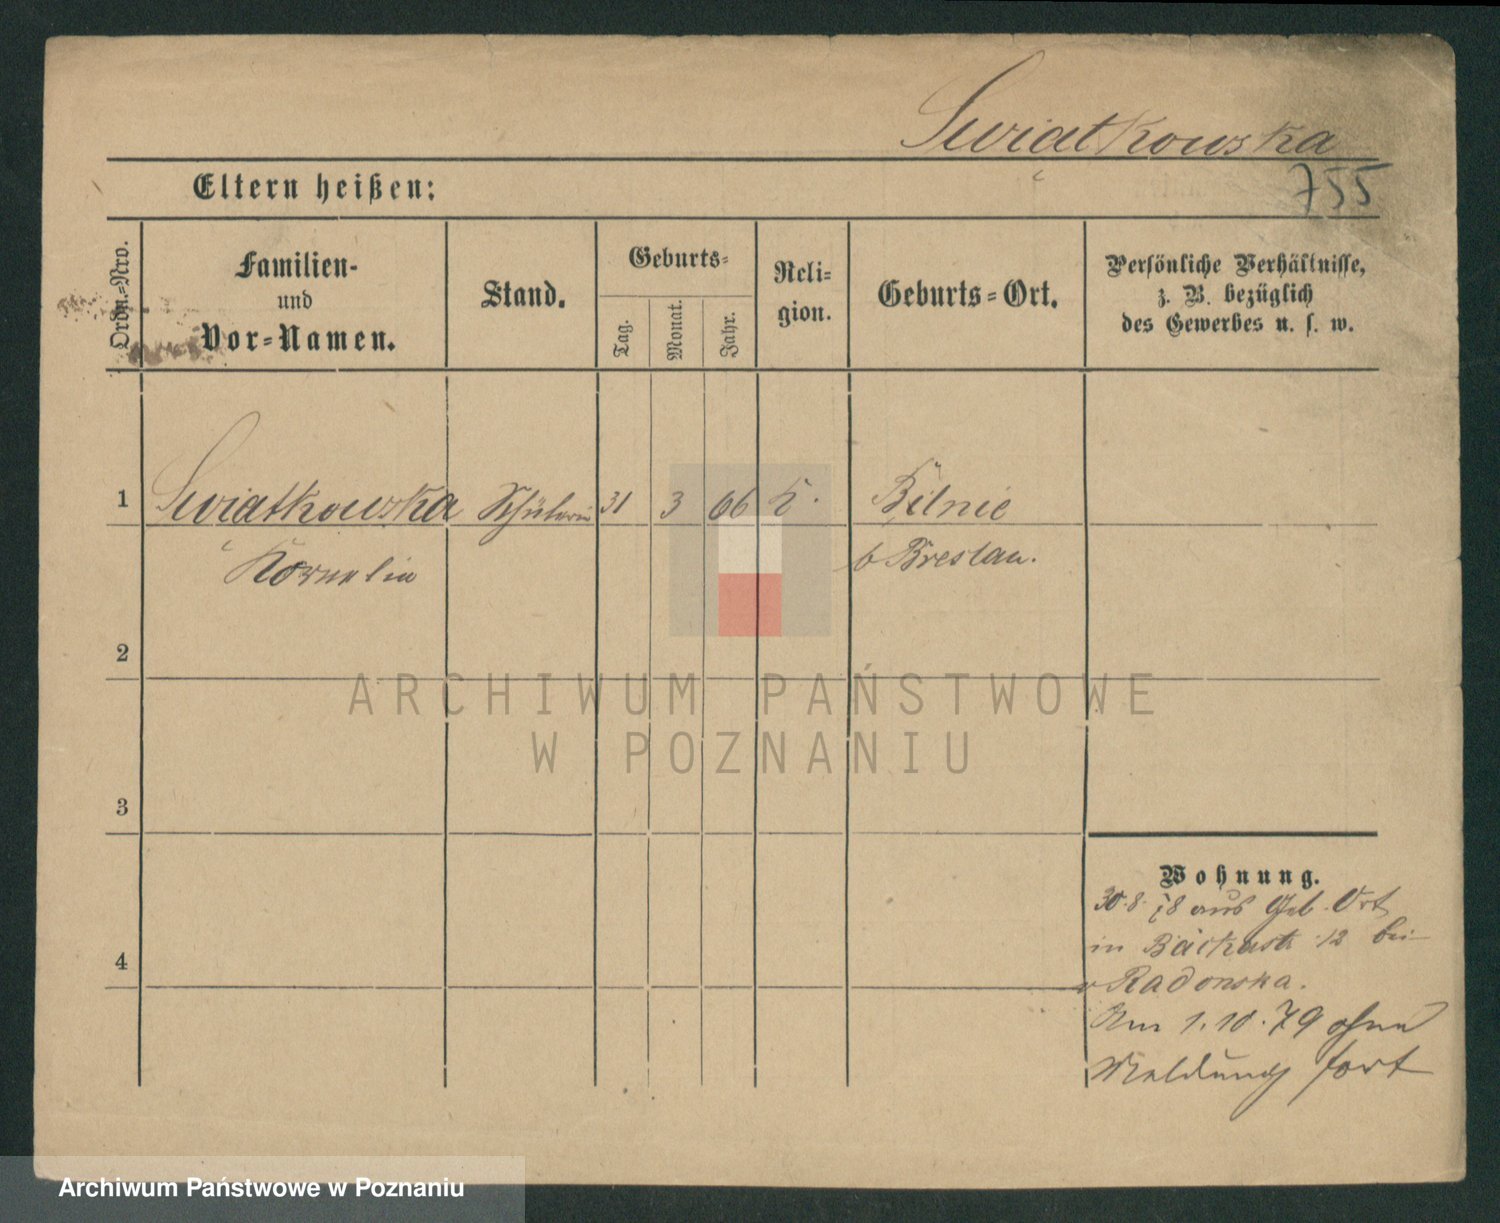 Swiatkowska
755
Eltern heißen:
Ordn.-Nro.
Familien-
und
Vor-Namen.
Stand.
Geburts-
Tag.
Monat.
Jahr.
Reli-
gion.
Geburts-Ort.
Persönliche Verhältnisse,
z. B. bezüglich
des Gewerbes u. s. w.
1 Swiatkowska Schülerin 31 3 66 k. Bilnie
Kornelia b Breslau.
2
3
4
Wohnung.
30.8.78 aus Geb. Ort
in 12 bei
Radonska.
Am 1.10.79 ohne
Meldung fort
ARCHIWUM PAŃSTWOWE
W POZNANIU
Archiwum Państwowe w Poznaniu